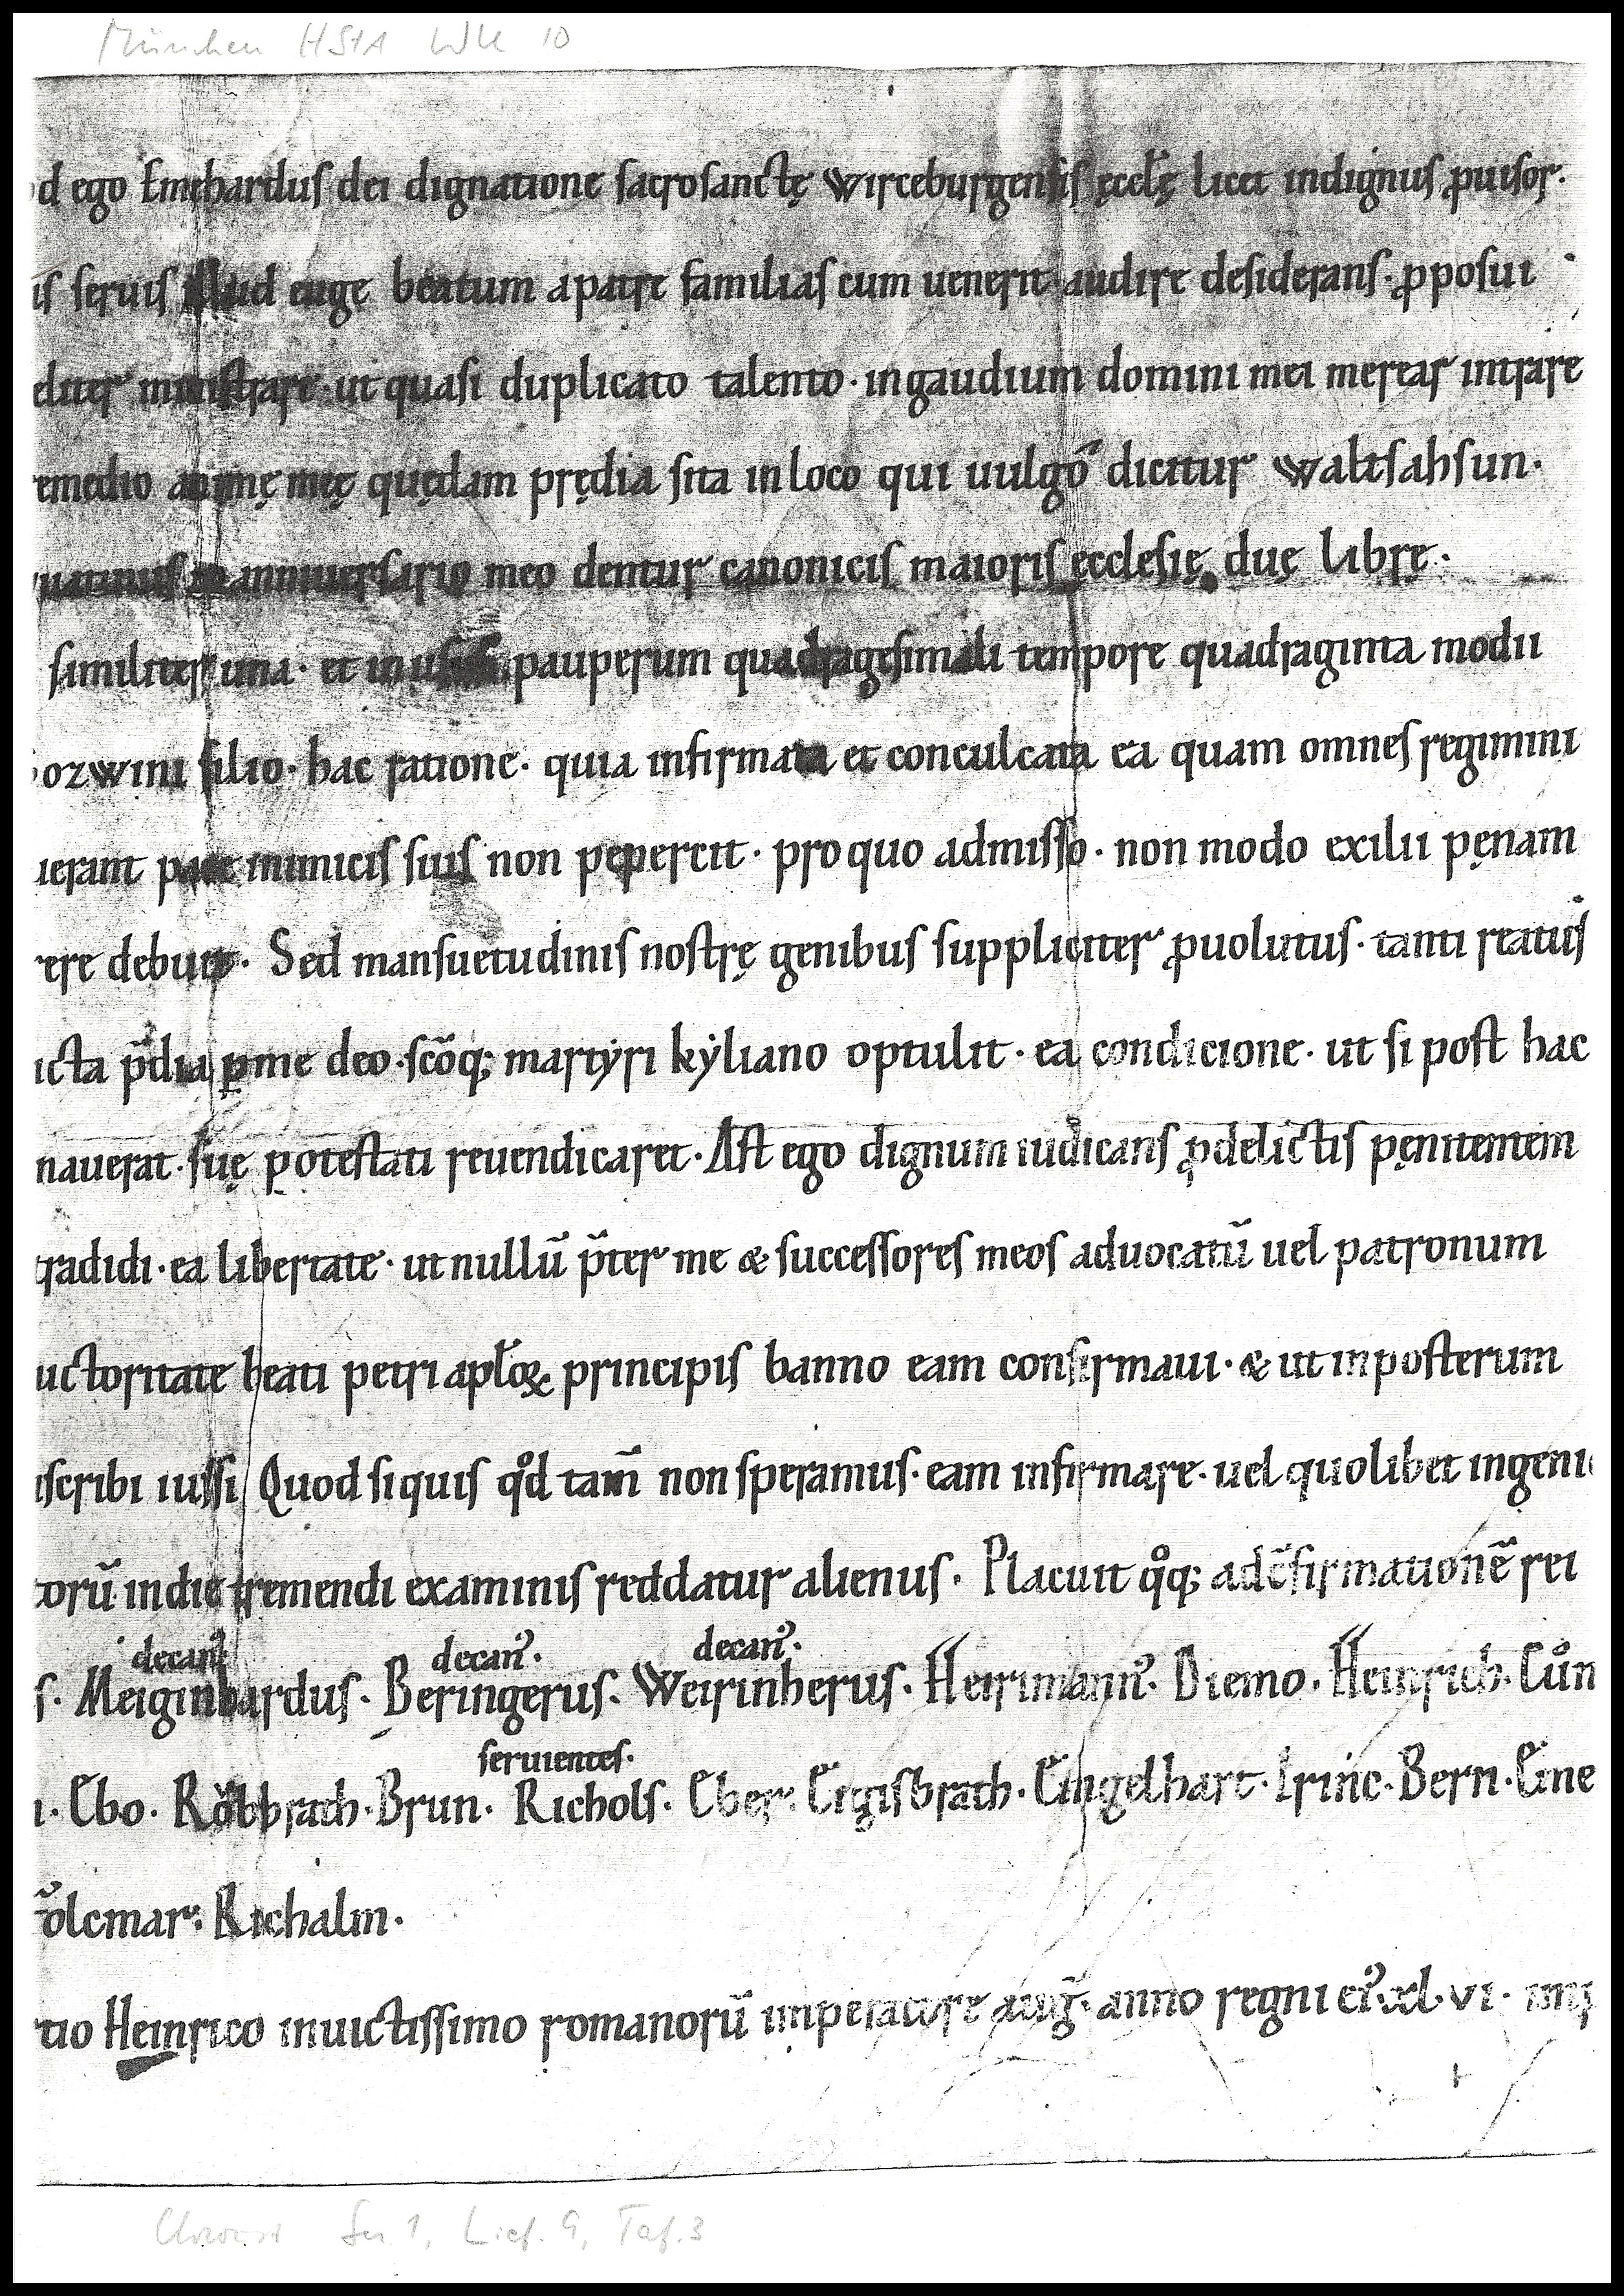 München HStA WU 10
d ego Emehardus dei dignatione sacrosanctę wirceburgensis ęccl̃ę licet indignus ꝓuisor·
is seruis illud euge beatum a patre familias cum uenerit audire desiderans· ꝓposui
editer ministrare· ut quasi duplicato talento· in gaudium domini mei merear intrare
emedio animę meę quędam prędia sita in loco qui uulgo dicitur waltsahsun·
uatinus in anniuersario meo dentur canonicis maioris ecclesię duę librę·
similiter una· et in usus pauperum quadragesimali tempore quadraginta modii
ozwini filio· hac ratione· quia infirmata et conculcata ea quam omnes regimini
ierant pace inimicis suis non pepercit· pro quo admisso· non modo exilii pęnam
ere debuit· Sed mansuetudinis nostrę genibus suppliciter ꝓuolutus· tanti reatus
icta p̃dia ꝑ me deo· sc̃oq; martẏri kẏliano optulit· ea condicione· ut si post hac
nauerat· suę potestati reuendicaret· Ast ego dignum iudicans ꝓ delictis pęnitentem
tradidi· ea libertate· ut nullũ p̃ter me & successores meos aduocatũ uel patronum
uctoritate beati petri apl̃oꝝ principis banno eam confirmaui· & ut in posterum
scribi iussi Quod si quis qͦd tam̃ non speramus· eam infirmare· uel quolibet ingeni
torũ in die tremendi examinis reddatur alienus· Placuit qͦq; ad c̃firmationẽ rei
decanꝰ decanꝰ· decanꝰ·
s· Meiginhardus· Beringerus· Weirinherus· Herimannꝰ· Diemo· Heinrich· Cůn
seruientes·
i· Ebo· Rǒbbrath· Brun· Richolf· Eber· Ergisbrath· Eingelhart· Irinc· Bern· Eine
olcmar· Richalm·
tio Heinrico inuictissimo romanorũ imperatore aug̃· anno regni eiꝰ· xl· vi· imp
Chroust Ser 1, Lief. 9, Taf. 3